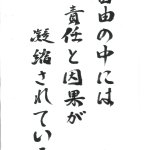 自由の中には
責任と因果が
凝縮されている